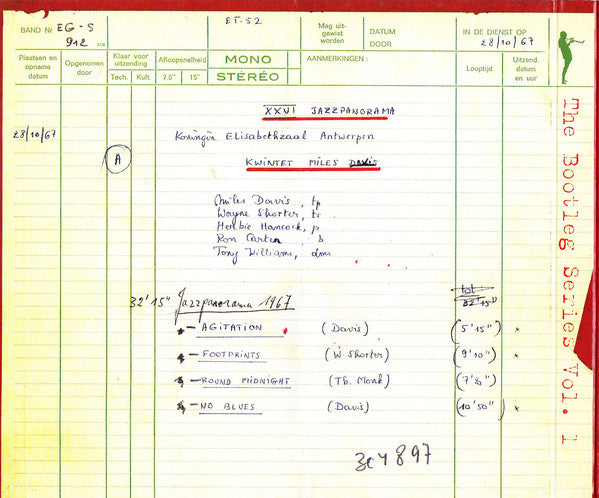 BAND Nr EG-S
912
ET.52
Mag uit-
gewist
worden
DATUM
DOOR
IN DE DIENST OP
28/10/67
Plaatsen en
opname
datum
Opgenomen
door
Klaar voor
uitzending
Tech. Kult.
Afloopsnelheid
7.5" 15"
MONO
STÉRÉO
AANMERKINGEN :
Looptijd
Uitzend.
datum
en uur
XXVI JAZZPANORAMA
28/10/67
Koningin Elisabethzaal Antwerpen
A
KWINTET MILES DAVIS
Miles Davis, tp
Wayne Shorter, ts
Herbie Hancock, p
Ron Carter, b
Tony Williams, dms
tot
32'15" Jazzpanorama 1967 32'15"
- AGITATION (Davis) (5'15") *
- FOOTPRINTS (W Shorter) (9'10") *
- ROUND MIDNIGHT (Th. Monk) (7'8")
- NO BLUES (Davis) (10'50") *
The Bootleg Series Vol. 1